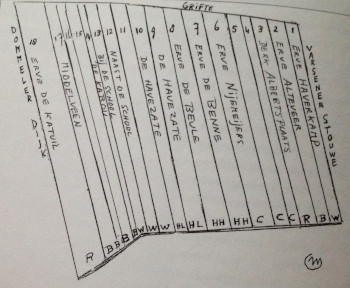 GRIFTE
DOMMELER DIJK
18 ERVE DE KATUIL
17 16 15 14 13 12 11 10 9 8 7 6 5 4 3 2 1
MIDDELVEEN
BIJ DE SCHOOL
NAAST DE SCHOOL
DE HAVEZATE
DE HAVEZATE
ERVE DE BEVLE
ERVE DE BENNE
ERVE NIJENEIJERS
DERK ALBERTSPLAATS
ERVE ALTEVEER
ERVE HAVERKAMP
VARSENER STOUWE
R B B B BW W W HL HL HH HH C C C R B W